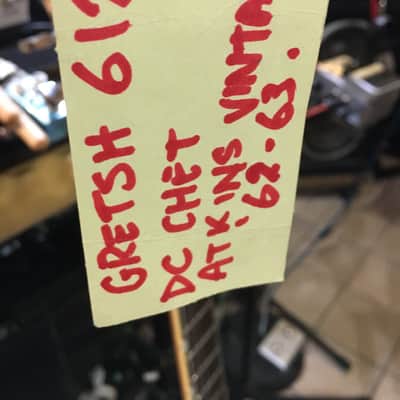 GRETSH 612
DC CHET
ATKINS VINTA
62-63.